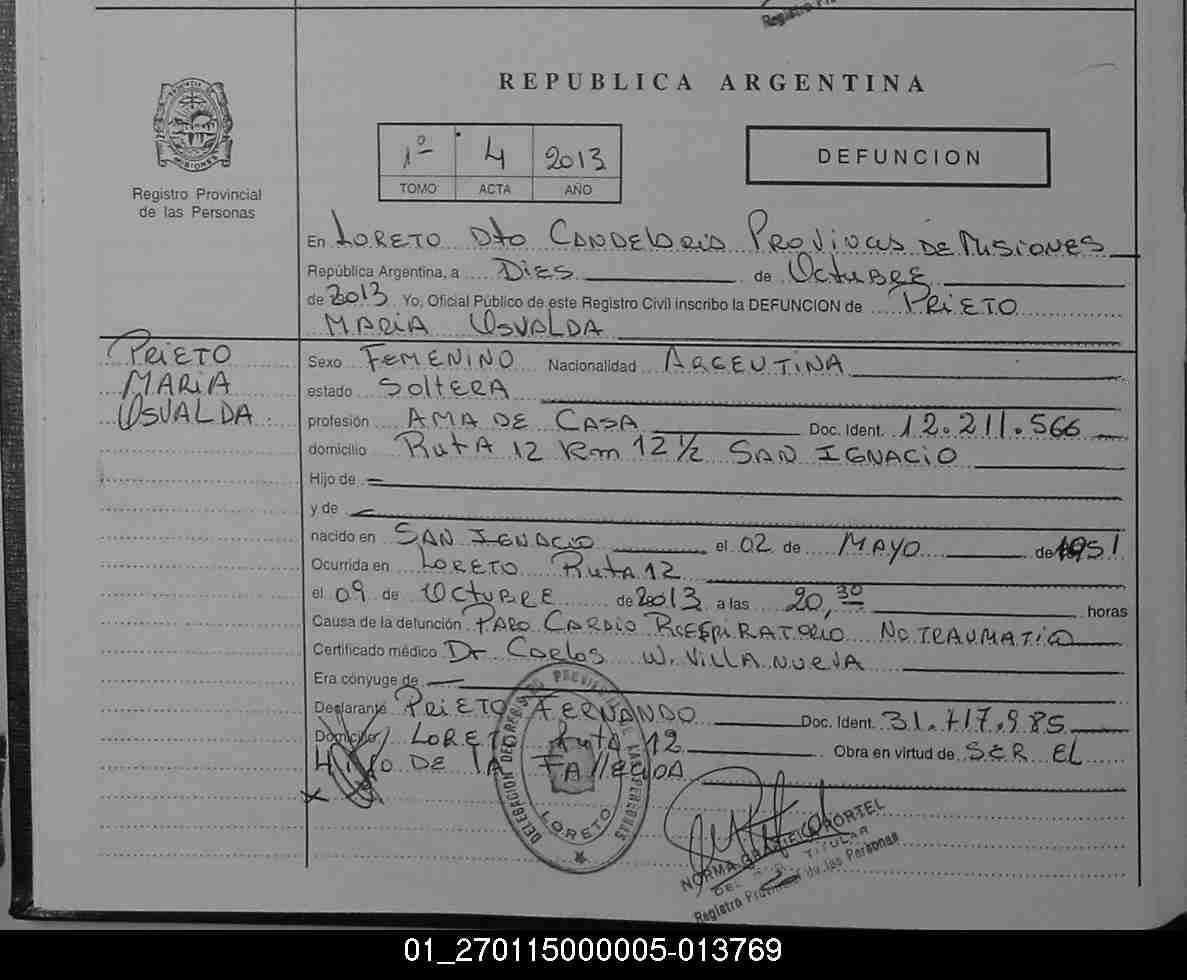 REPUBLICA ARGENTINA
PROVINCIA DE
MISIONES
Registro Provincial
de las Personas
1º 4 2013
TOMO ACTA AÑO
DEFUNCION
En LORETO Dto CANDELARIA PROVINCIA DE MISIONES
República Argentina, a DIES de OCTUBRE
de 2013 Yo, Oficial Público de este Registro Civil inscribo la DEFUNCION de PRIETO
MARIA OSVALDA
PRIETO
MARIA
OSVALDA
Sexo FEMENINO Nacionalidad ARGENTINA
estado SOLTERA
profesión AMA DE CASA Doc. Ident. 12.211.566
domicilio RUTA 12 Km 12 ½ SAN IGNACIO
Hijo de
y de
nacido en SAN IGNACIO el 02 de MAYO de 1951
Ocurrida en LORETO Ruta 12
el 09 de OCTUBRE de 2013 a las 20,30 horas
Causa de la defunción PARO CARDIO RESPIRATORIO NO TRAUMATICO
Certificado médico Dr CARLOS W. VILLANUEVA
Era cónyuge de
Declarante PRIETO FERNANDO Doc. Ident. 31.717.985
Domicilio LORETO Ruta 12 Obra en virtud de SER EL
HIJO DE LA FALLECIDA
LORETO
NORMA
TITULAR
Registro Provincial de las Personas
01_270115000005-013769